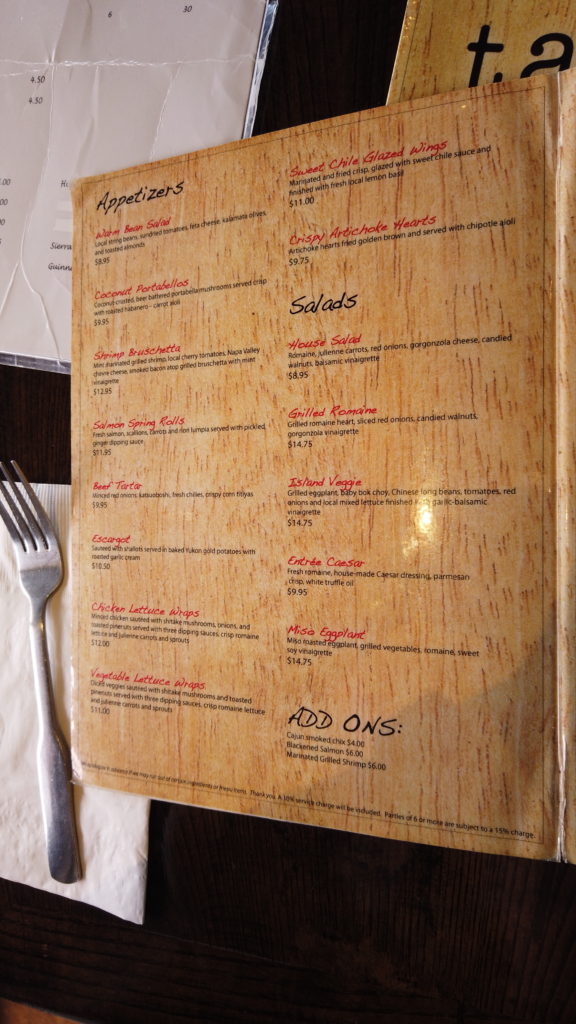 6
30
4.50
4.50
ta
Appetizers
Warm Bean Salad
Local string beans, sundried tomatoes, feta cheese, kalamata olives,
and toasted almonds
$8.95
Coconut Portabellos
Coconut-crusted, beer battered portabella mushrooms served crisp
with roasted habanero - carrot aioli
$9.95
Shrimp Bruschetta
Mint marinated grilled shrimp, local cherry tomatoes, Napa Valley
chevre cheese, smoked bacon atop grilled bruschetta with mint
vinaigrette
$12.95
Salmon Spring Rolls
Fresh salmon, scallions, carrots and nori lumpia served with pickled
ginger dipping sauce
$11.95
Beef Tartar
Minced red onions, katsuoboshi, fresh chilies, crispy corn
$9.95
Escargot
Sauteed with shallots served in baked Yukon gold potatoes with
roasted garlic cream
$10.50
Chicken Lettuce Wraps
Minced chicken sauteed with shitake mushrooms, onions, and
toasted pinenuts served with three dipping sauces, crisp romaine
lettuce and julienne carrots and sprouts
$12.00
Vegetable Lettuce Wraps
Diced veggies sauteed with shitake mushrooms and toasted
pinenuts served with three dipping sauces, crisp romaine lettuce
and julienne carrots and sprouts
$11.00
Sweet Chile Glazed Wings
Marinated and fried crisp, glazed with sweet chile sauce and
finished with fresh local lemon basil
$11.00
Crispy Artichoke Hearts
Artichoke hearts fried golden brown and served with chipotle aioli
$9.75
Salads
House Salad
Romaine, julienne carrots, red onions, gorgonzola cheese, candied
walnuts, balsamic vinaigrette
$8.95
Grilled Romaine
Grilled romaine heart, sliced red onions, candied walnuts,
gorgonzola vinaigrette
$14.75
Island Veggie
Grilled eggplant, baby bok choy, Chinese long beans, tomatoes, red
onions and local mixed lettuce finished garlic-balsamic
vinaigrette
$14.75
Entrée Caesar
Fresh romaine, house-made Caesar dressing, parmesan
crisp, white truffle oil
$9.95
Miso Eggplant
Miso roasted eggplant, grilled vegetables, romaine, sweet
soy vinaigrette
$14.75
ADD ONS:
Cajun smoked chix $4.00
Blackened Salmon $6.00
Marinated Grilled Shrimp $6.00
apologize in advance if we may run out of certain ingredients or menu items. Thank you. A 10% service charge will be included. Parties of 6 or more are subject to a 15% charge.
Sierra
Guinne